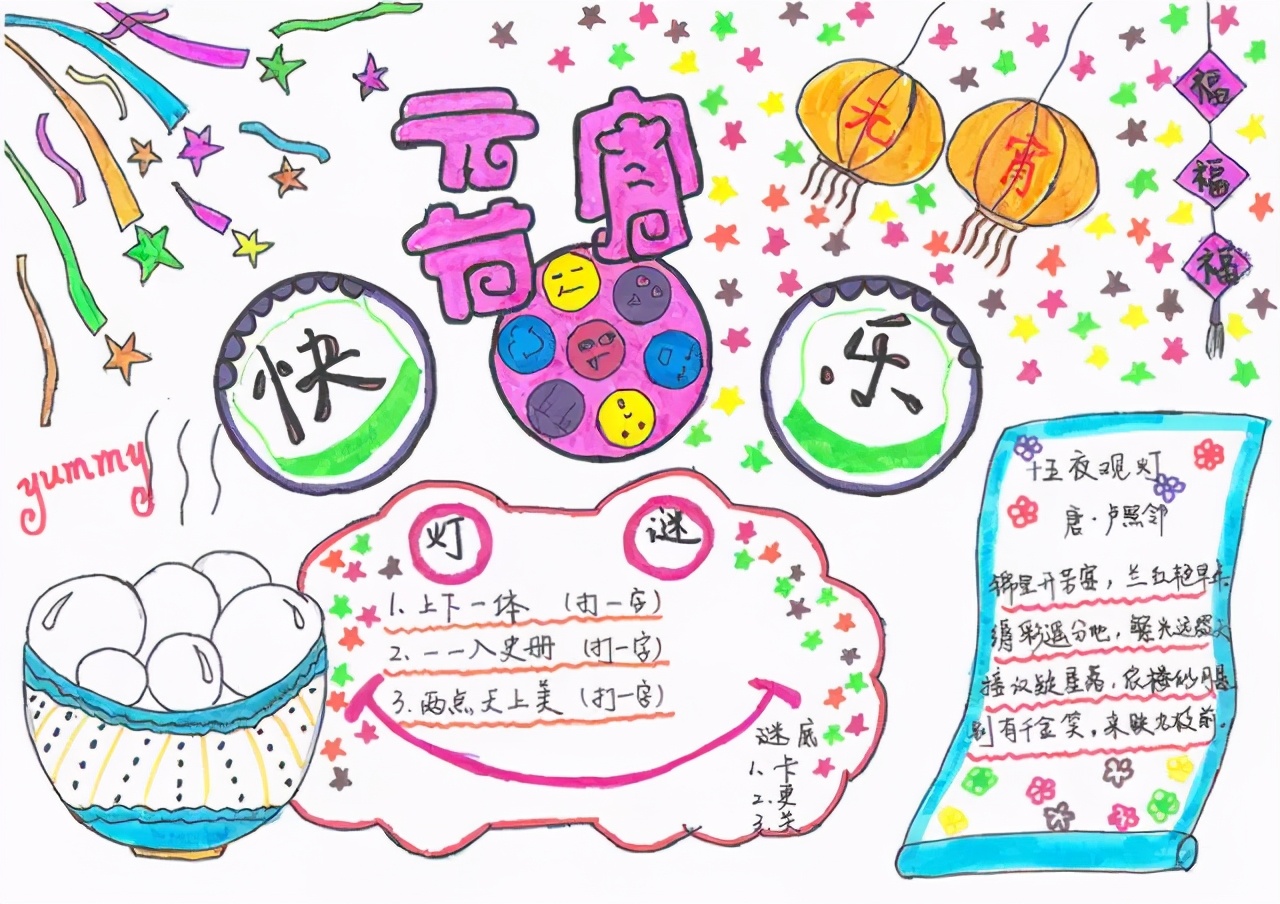 元宵
节
元
宵
福
福
福
快
乐
yummy
灯
谜
1. 上下一体 (打一字)
2. 一一入史册 (打一字)
3. 两点天上美 (打一字)
谜底
1. 卡
2. 更
3. 关
十五夜观灯
唐·卢照邻
锦里开芳宴，兰红艳早年
缛彩遥分地，繁光远缀天
接汉疑星落，依楼似月悬
别有千金笑，来映九枝前。